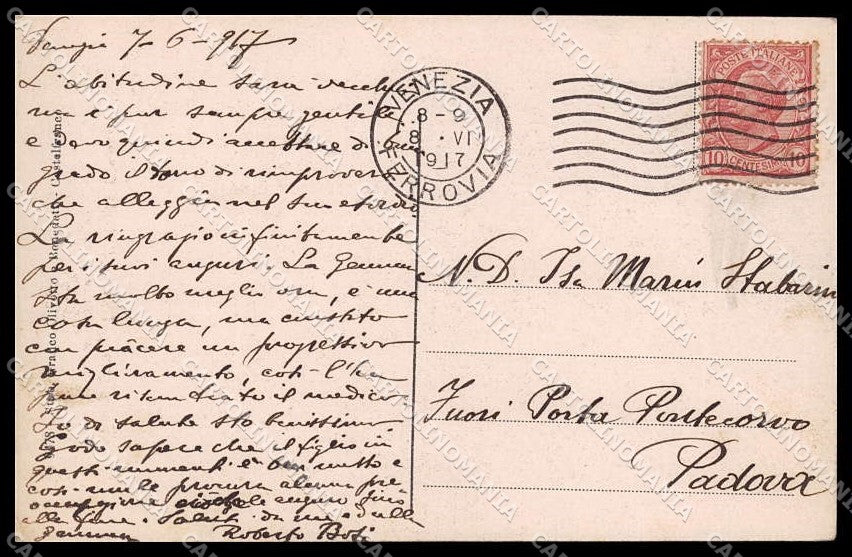 7-6-917
L'abitudine sarà vecchia
ma è pur sempre gentile
e devo quindi accettare di buon
grado il tono di rimprovero
che alleggia nel suo
La ringrazio infinitamente
per i suoi auguri. La Gemma
sta molto meglio ora, è una
cosa lunga, ma constato
con piacere un progressivo
miglioramento, così l'ha
pure riscontrato il medico
Io di salute sto benissimo
Godo sapere che il figlio in
questi momenti è ben messo e
così non le procura alcuna pre
occupazione augura fino
alla fine. Saluti da me e dalla
Gemma Roberto Bosi
VENEZIA
8-9
8. VI
1917
FERROVIA
POSTE ITALIANE
10 CENTESIMI 10
N. D. Isa Marin Stabarin
Fuori Porta Pontecorvo
Padova
CARTOLINOMANIA